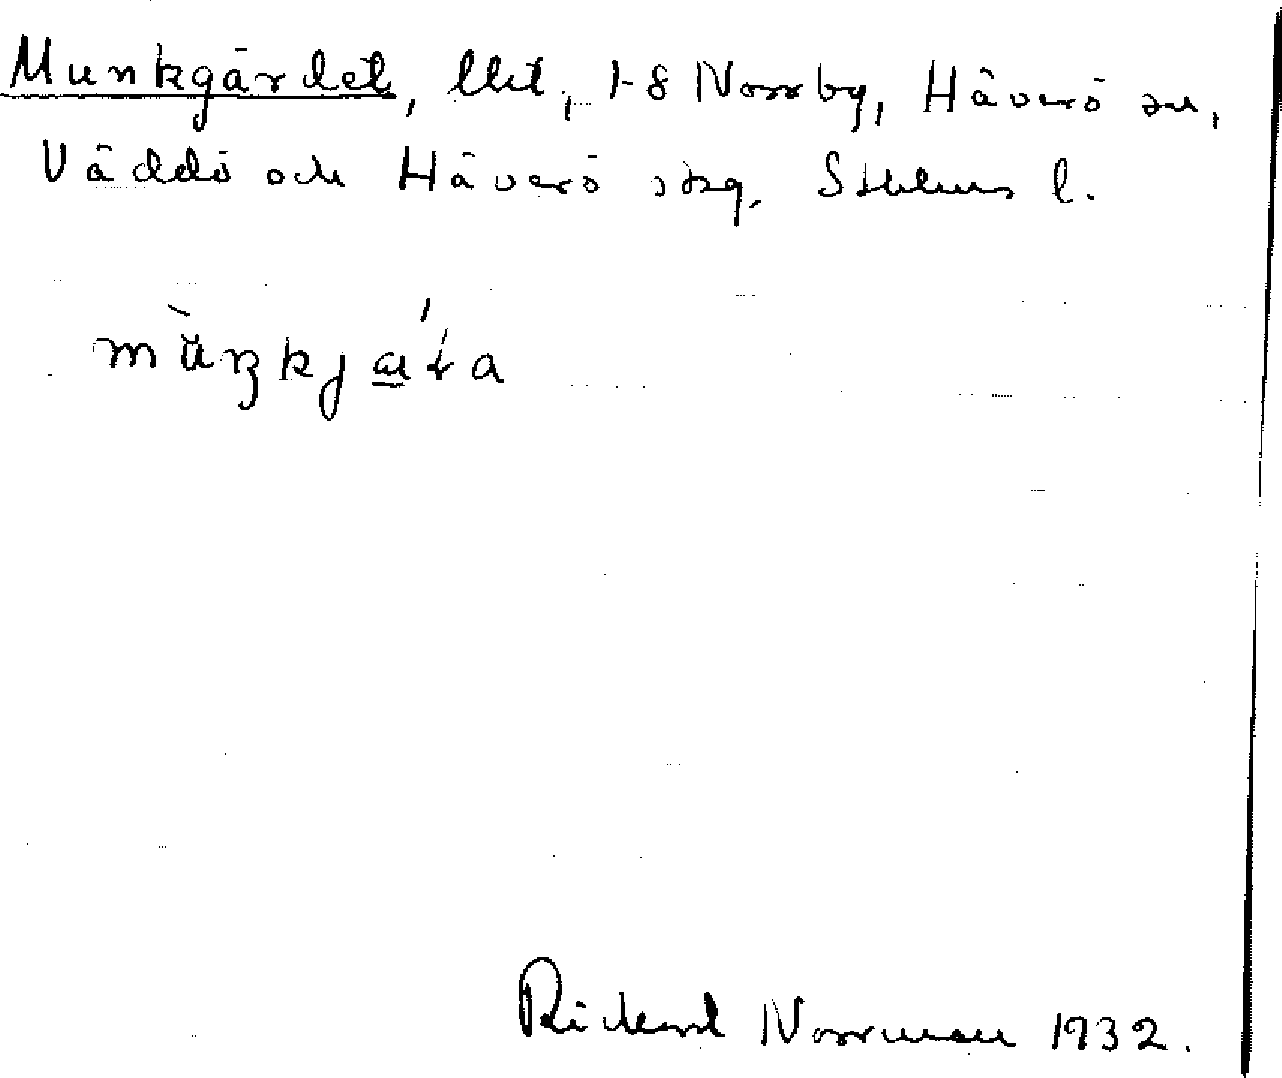 Munkgärdet, 1-8 Norrby, Häverö sn,
Väddö och Häverö skg, Sthlms l.
Rickard Norrman 1932.